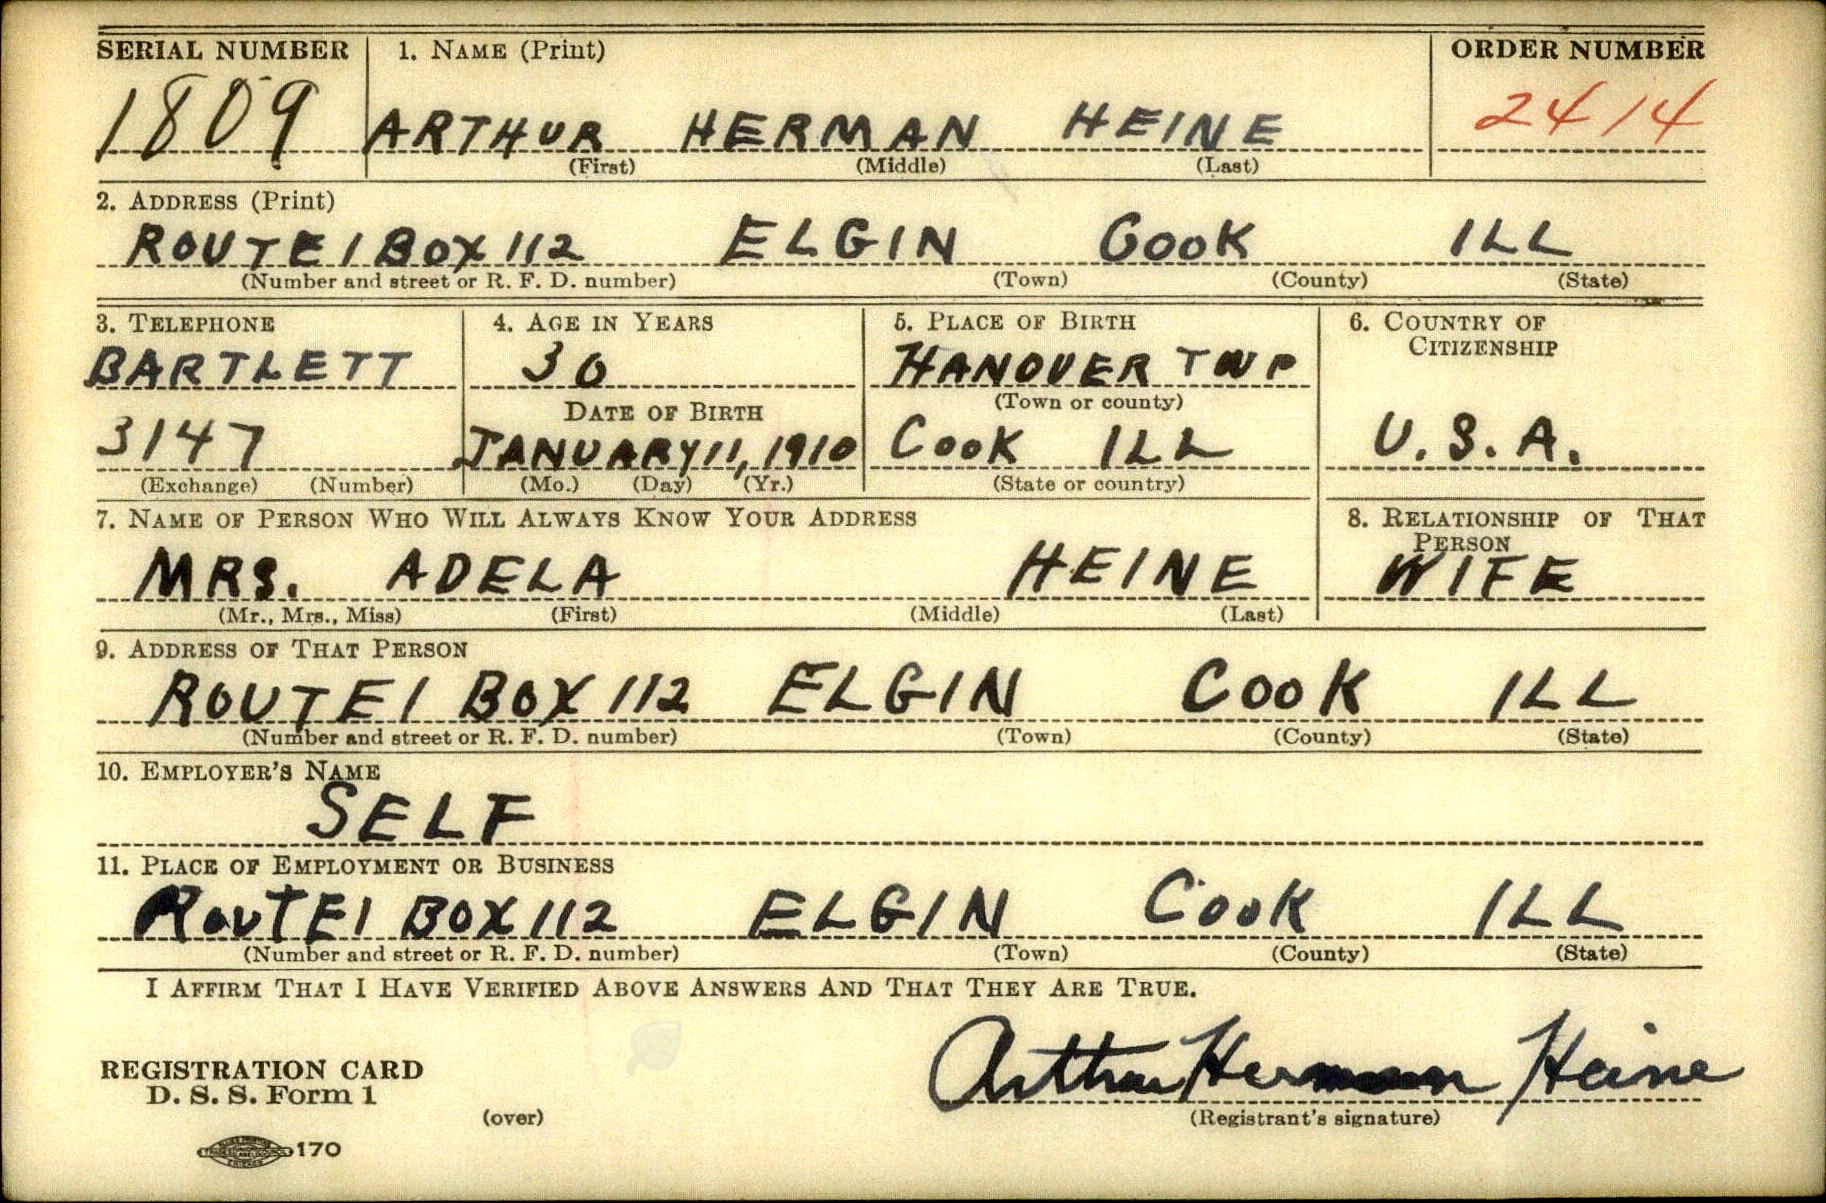 SERIAL NUMBER 1. NAME (Print) ORDER NUMBER
1809 ARTHUR HERMAN HEINE 2414
(First) (Middle) (Last)
2. ADDRESS (Print)
ROUTE 1 BOX 112 ELGIN COOK ILL
(Number and street or R. F. D. number) (Town) (County) (State)
3. TELEPHONE 4. AGE IN YEARS 5. PLACE OF BIRTH 6. COUNTRY OF CITIZENSHIP
BARTLETT 30 HANOVER TWP
DATE OF BIRTH (Town or county)
3147 JANUARY 11, 1910 COOK ILL U.S.A.
(Exchange) (Number) (Mo.) (Day) (Yr.) (State or country)
7. NAME OF PERSON WHO WILL ALWAYS KNOW YOUR ADDRESS 8. RELATIONSHIP OF THAT PERSON
MRS. ADELA HEINE WIFE
(Mr., Mrs., Miss) (First) (Middle) (Last)
9. ADDRESS OF THAT PERSON
ROUTE 1 BOX 112 ELGIN COOK ILL
(Number and street or R. F. D. number) (Town) (County) (State)
10. EMPLOYER'S NAME
SELF
11. PLACE OF EMPLOYMENT OR BUSINESS
ROUTE 1 BOX 112 ELGIN COOK ILL
(Number and street or R. F. D. number) (Town) (County) (State)
I AFFIRM THAT I HAVE VERIFIED ABOVE ANSWERS AND THAT THEY ARE TRUE.
Arthur Herman Heine
REGISTRATION CARD
D. S. S. Form 1
(over) (Registrant's signature)
170